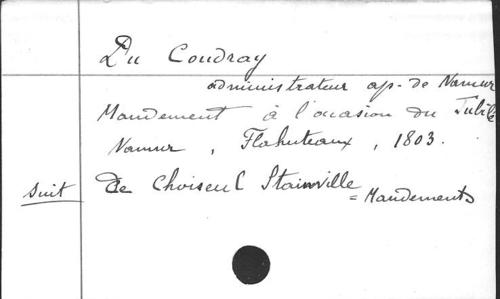 Du Coudray
administrateur ap. de Namur
Mandement à l'occasion du Jubilé
Namur, Flahuteaux, 1803.
suit de Choiseul Stainville
= Mandements